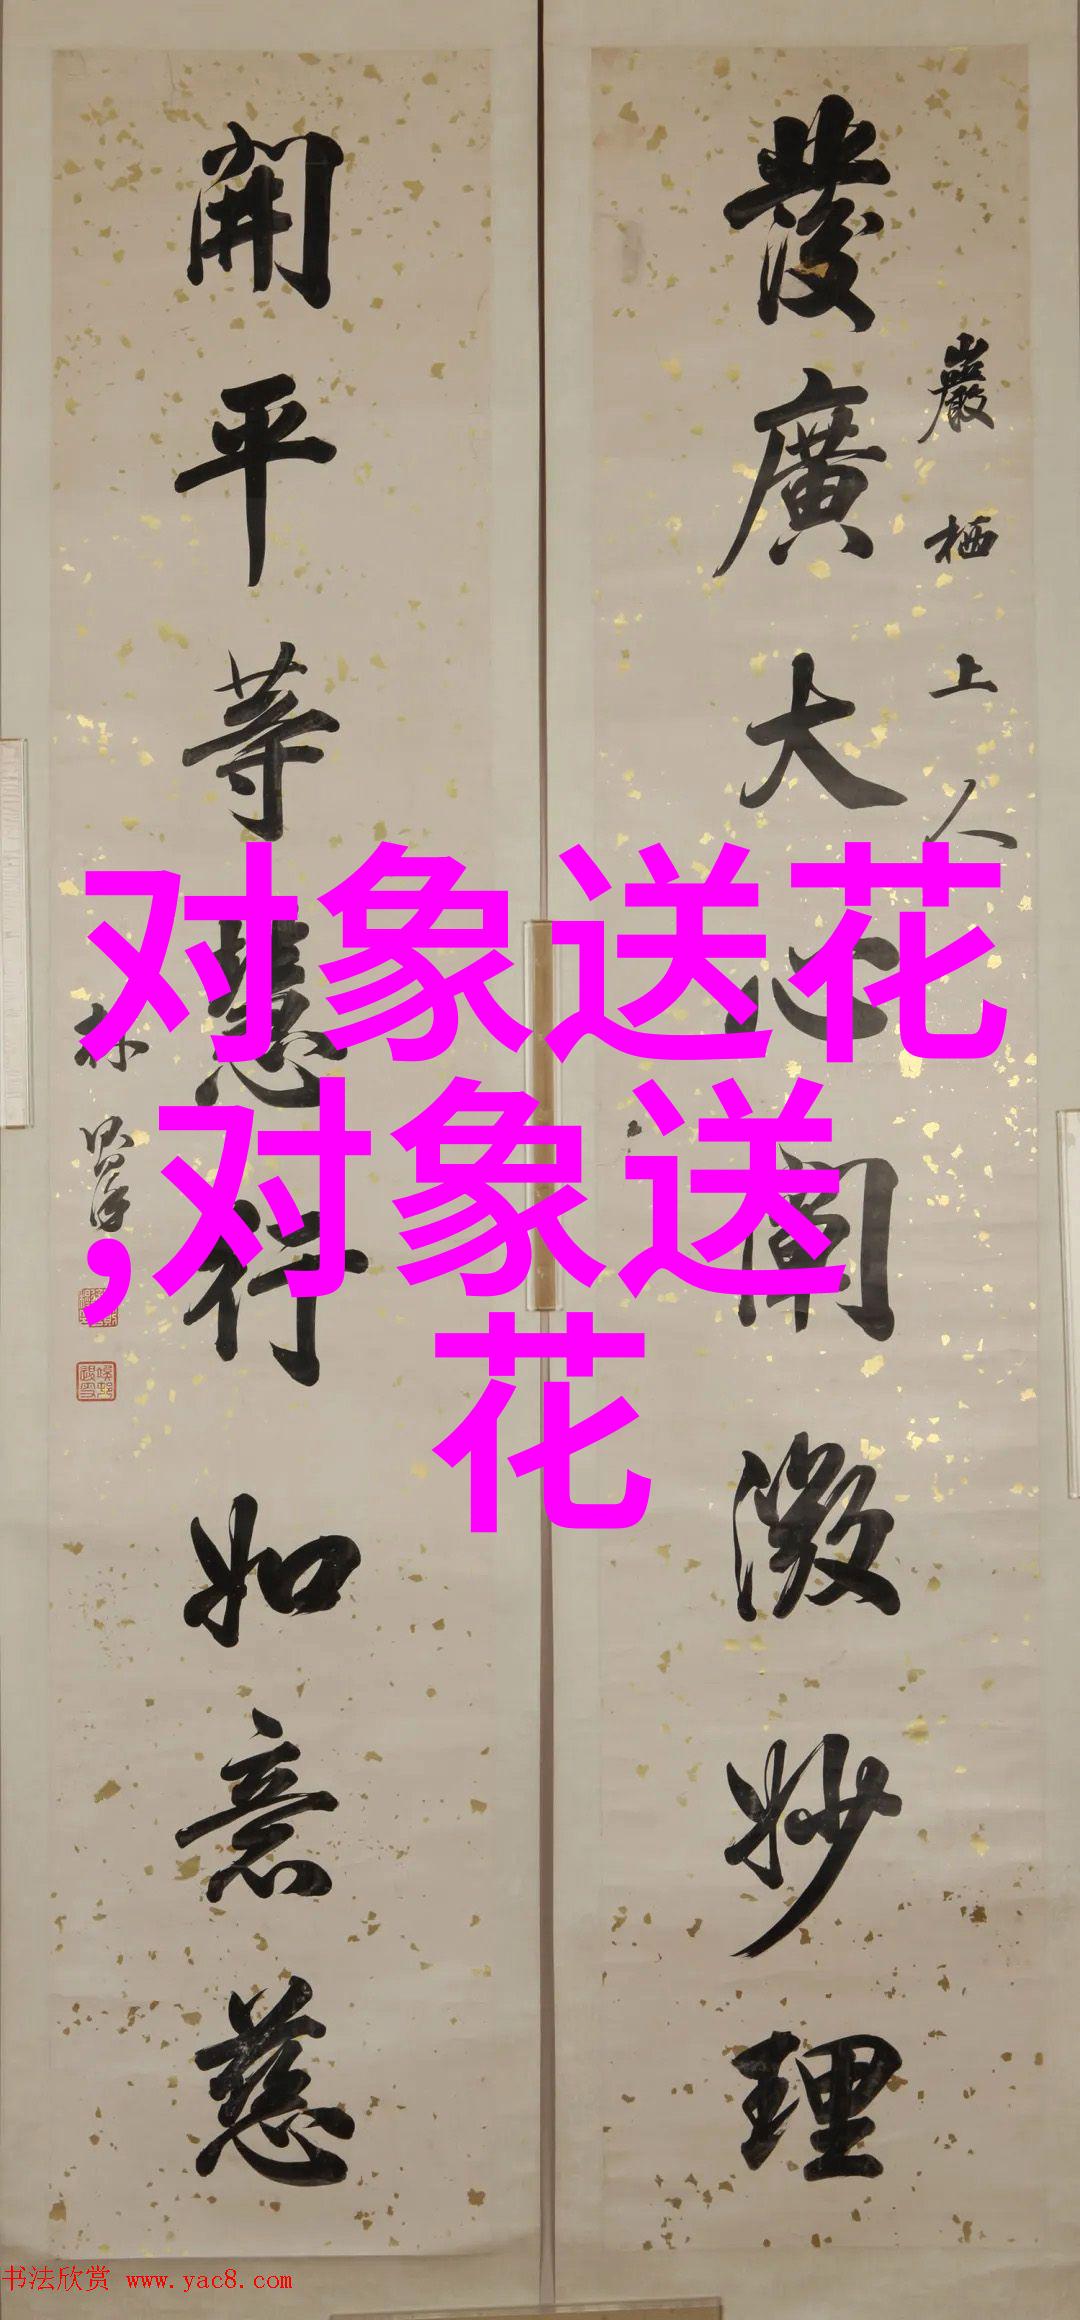 發廣大心闡微妙理
巖栖上人
開平等慧行如意慈
林
对象送花
,对象送
花
书法欣赏 www.yac8.com